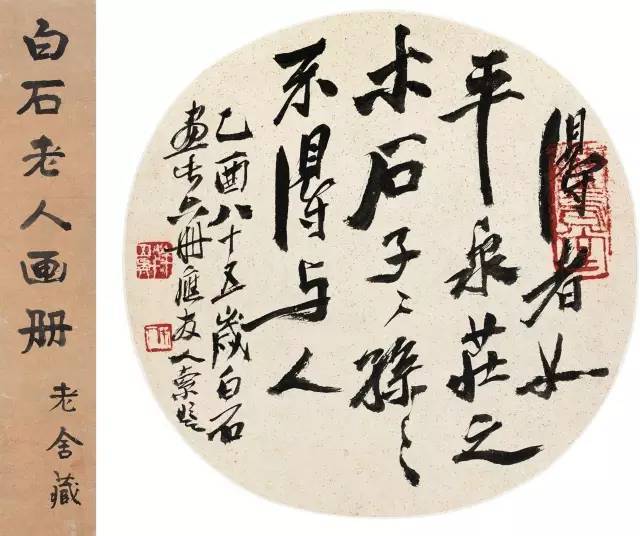 得者如
平泉莊之
木石子々孫々
不得与人
乙酉八十五歲白石
畫六册應友人索題
白石老人画册
老舍藏